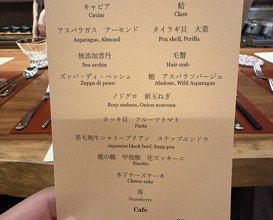 キャビア 蛤
Caviar Clam
アスパラガス アーモンド タイラギ貝 大葉
Asparagus, Almond Pen shell, Perilla
無添加雲丹 毛蟹
Sea urchin Hair crab
ズッパ・ディ・ペッシェ 鮑 アスパラソバージュ
Zuppa di pesce Abalone, Wild Asparagus
ノドグロ 新玉ねぎ
Rosy seabass, Onion nouveau
ホッキ貝 フルーツトマト
Pasta
黒毛和牛シャトーブリアン スナップエンドウ
Japanese black beef, Snap pea
花ズッキーニ
Risotto
木下チーズケーキ
Cheese cake
苺
Strawberry
Cafe